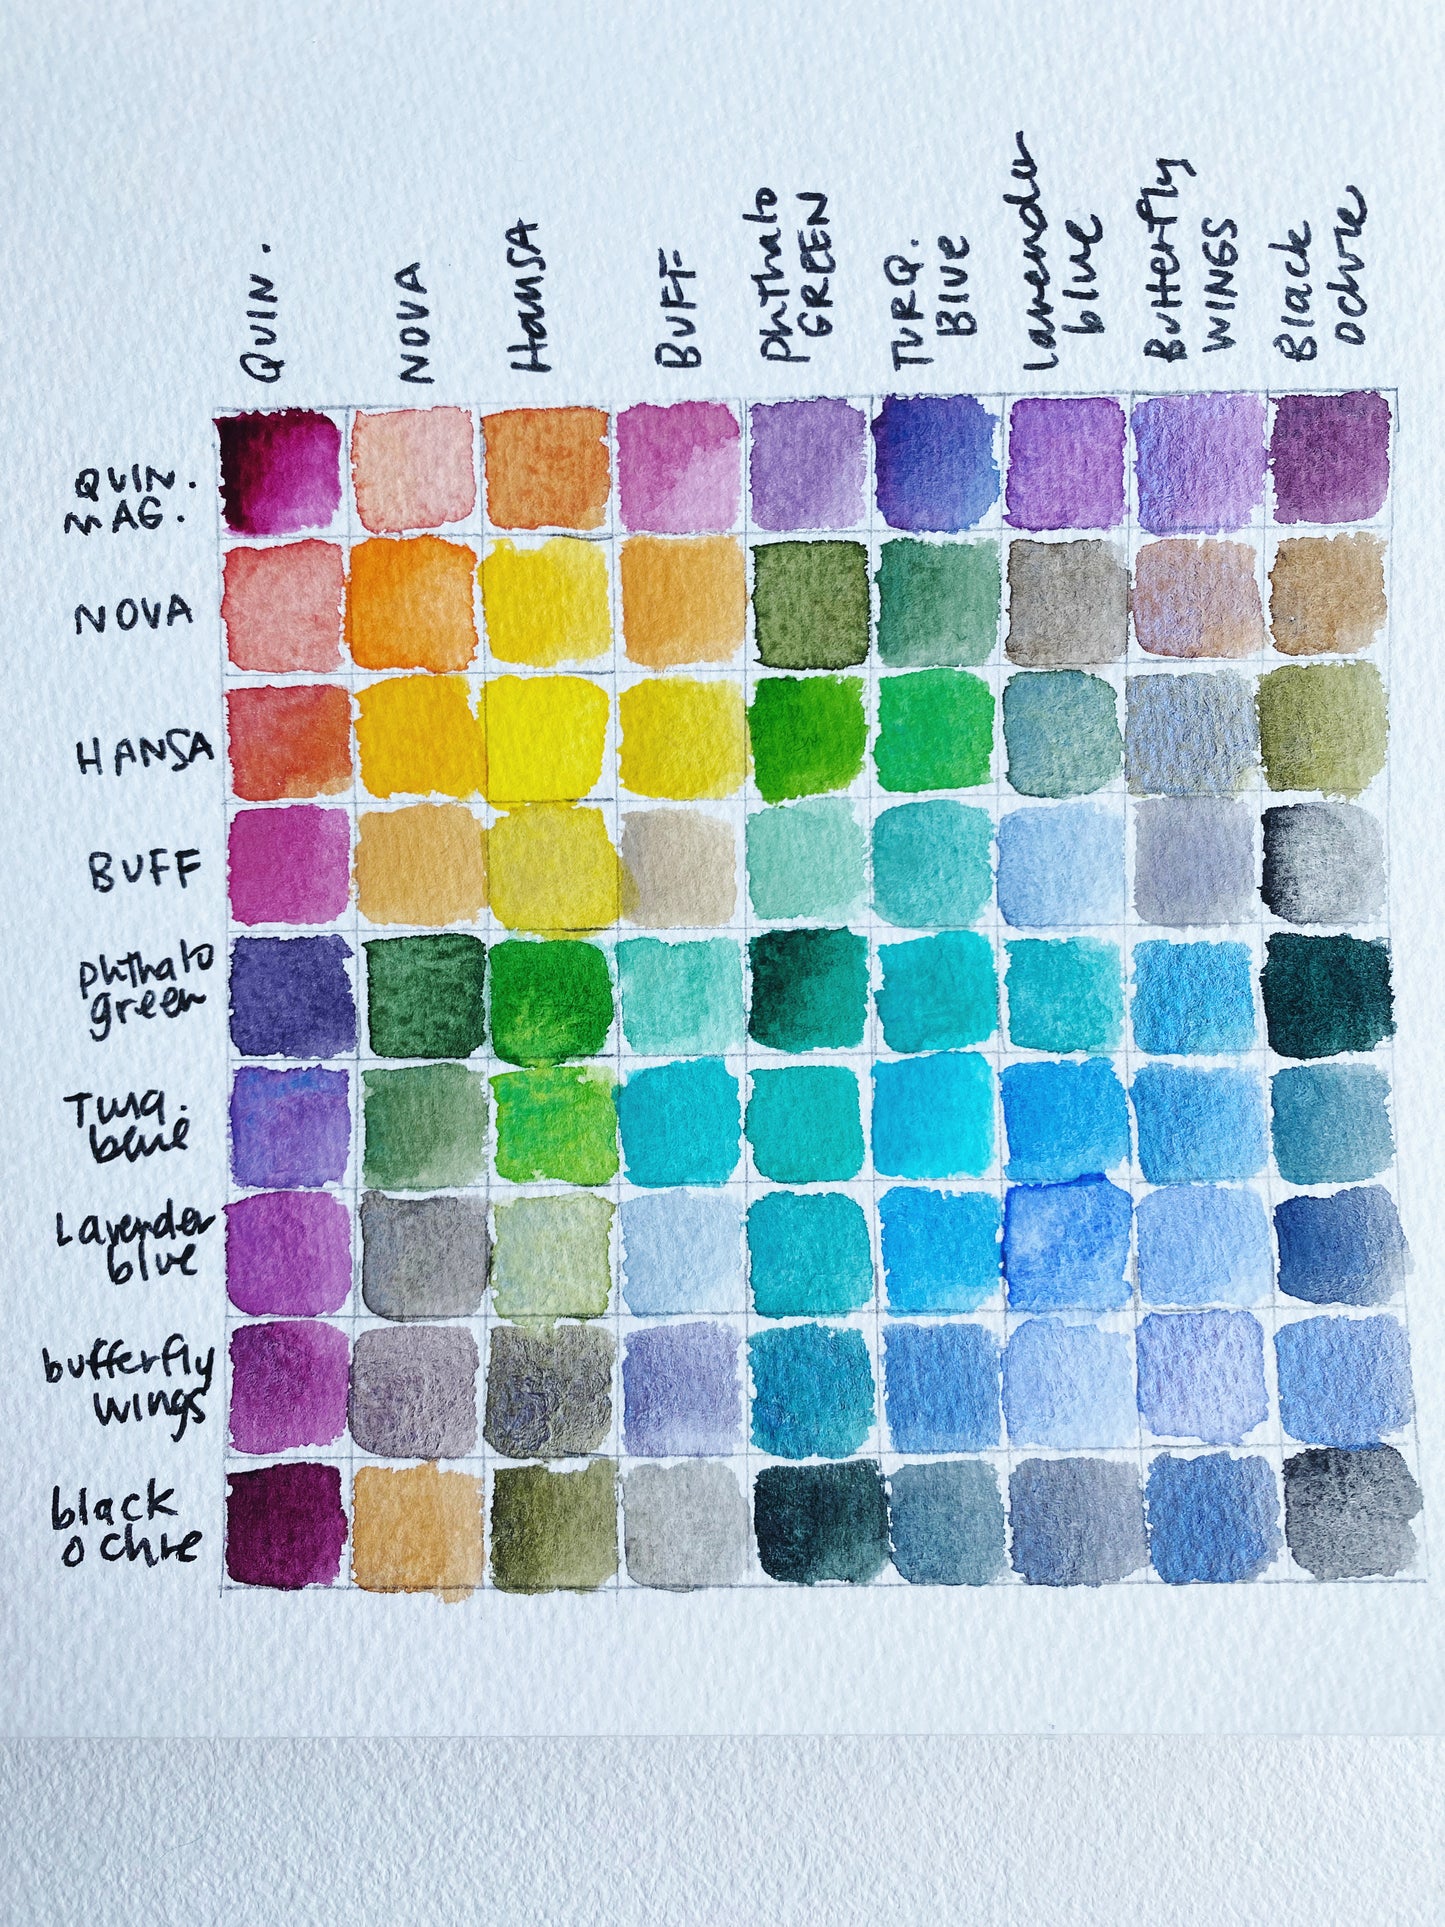 QUIN.
NOVA
HANSA
BUFF
Phthalo
GREEN
TURQ.
BLUE
Lavender
blue
Butterfly
WINGS
Black
Ochre
QUIN.
MAG.
NOVA
HANSA
BUFF
Phthalo
green
Turq.
blue
Lavender
blue
butterfly
wings
black
ochre